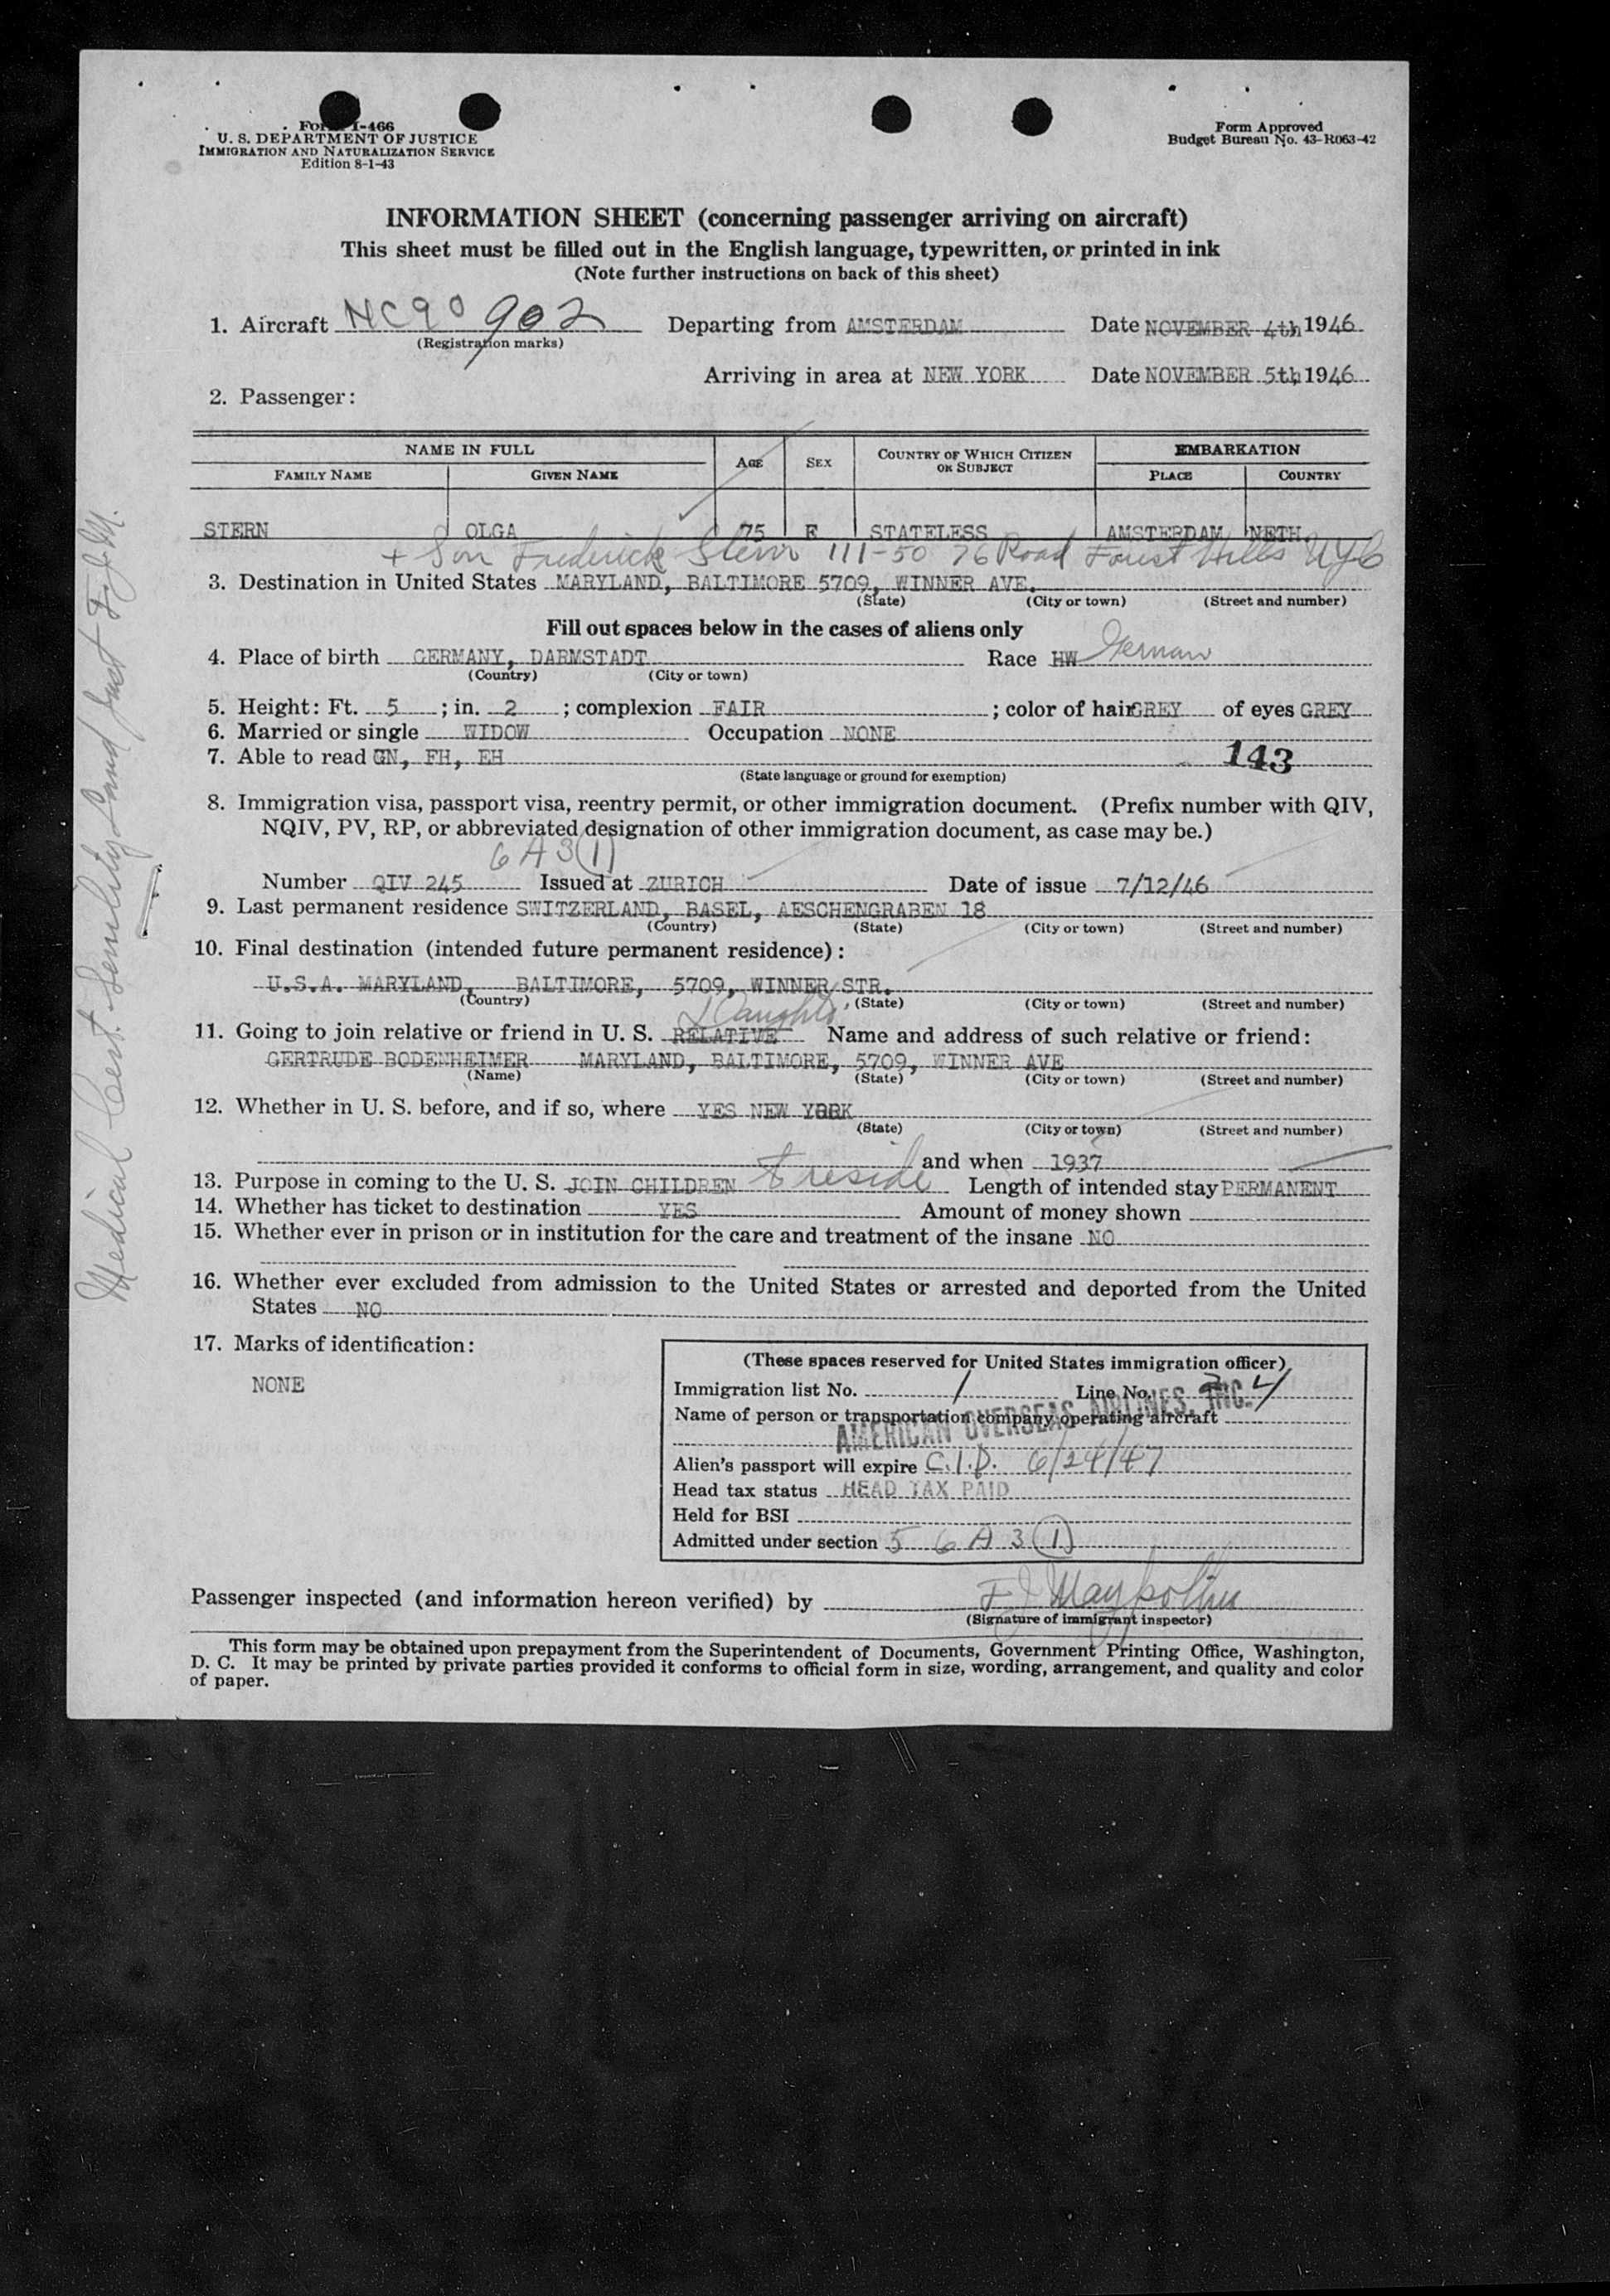 Form I-466
U. S. DEPARTMENT OF JUSTICE
IMMIGRATION AND NATURALIZATION SERVICE
Edition 8-1-43
Form Approved
Budget Bureau No. 43-R063-42
INFORMATION SHEET (concerning passenger arriving on aircraft)
This sheet must be filled out in the English language, typewritten, or printed in ink
(Note further instructions on back of this sheet)
1. Aircraft NC90 902 Departing from AMSTERDAM Date NOVEMBER 4th 1946
(Registration marks)
Arriving in area at NEW YORK Date NOVEMBER 5th 1946
2. Passenger:
NAME IN FULL AGE SEX COUNTRY OF WHICH CITIZEN OR SUBJECT EMBARKATION
FAMILY NAME GIVEN NAME PLACE COUNTRY
STERN OLGA 75 F STATELESS AMSTERDAM NETH.
+ Son Frederick Stern 111-50 76 Road Forest Hills NYC
3. Destination in United States MARYLAND, BALTIMORE 5709, WINNER AVE.
(State) (City or town) (Street and number)
Fill out spaces below in the cases of aliens only
4. Place of birth GERMANY, DARMSTADT Race HW German
(Country) (City or town)
5. Height: Ft. 5 ; in. 2 ; complexion FAIR ; color of hair GREY of eyes GREY
6. Married or single WIDOW Occupation NONE
7. Able to read GN, FH, EH 143
(State language or ground for exemption)
8. Immigration visa, passport visa, reentry permit, or other immigration document. (Prefix number with QIV,
NQIV, PV, RP, or abbreviated designation of other immigration document, as case may be.)
6 A 3 (1)
Number QIV 245 Issued at ZURICH Date of issue 7/12/46
9. Last permanent residence SWITZERLAND, BASEL, AESCHENGRABEN 18
(Country) (State) (City or town) (Street and number)
10. Final destination (intended future permanent residence):
U.S.A. MARYLAND, BALTIMORE, 5709, WINNER STR.
(Country) (State) (City or town) (Street and number)
Daughter
11. Going to join relative or friend in U. S. RELATIVE Name and address of such relative or friend:
GERTRUDE BODENHEIMER MARYLAND, BALTIMORE, 5709, WINNER AVE
(Name) (State) (City or town) (Street and number)
12. Whether in U. S. before, and if so, where YES NEW YORK
(State) (City or town) (Street and number)
and when 1937
13. Purpose in coming to the U. S. JOIN CHILDREN to reside Length of intended stay PERMANENT
14. Whether has ticket to destination YES Amount of money shown
15. Whether ever in prison or in institution for the care and treatment of the insane NO
16. Whether ever excluded from admission to the United States or arrested and deported from the United
States NO
17. Marks of identification:
NONE
(These spaces reserved for United States immigration officer)
Immigration list No. 1 Line No. 4
Name of person or transportation company operating aircraft
AMERICAN OVERSEAS AIRLINES, INC.
Alien's passport will expire C.I.D. 6/24/47
Head tax status HEAD TAX PAID
Held for BSI
Admitted under section 5 6 A 3 (1)
Passenger inspected (and information hereon verified) by
(Signature of immigrant inspector)
This form may be obtained upon prepayment from the Superintendent of Documents, Government Printing Office, Washington,
D. C. It may be printed by private parties provided it conforms to official form in size, wording, arrangement, and quality and color
of paper.
Medical Cert. Senility